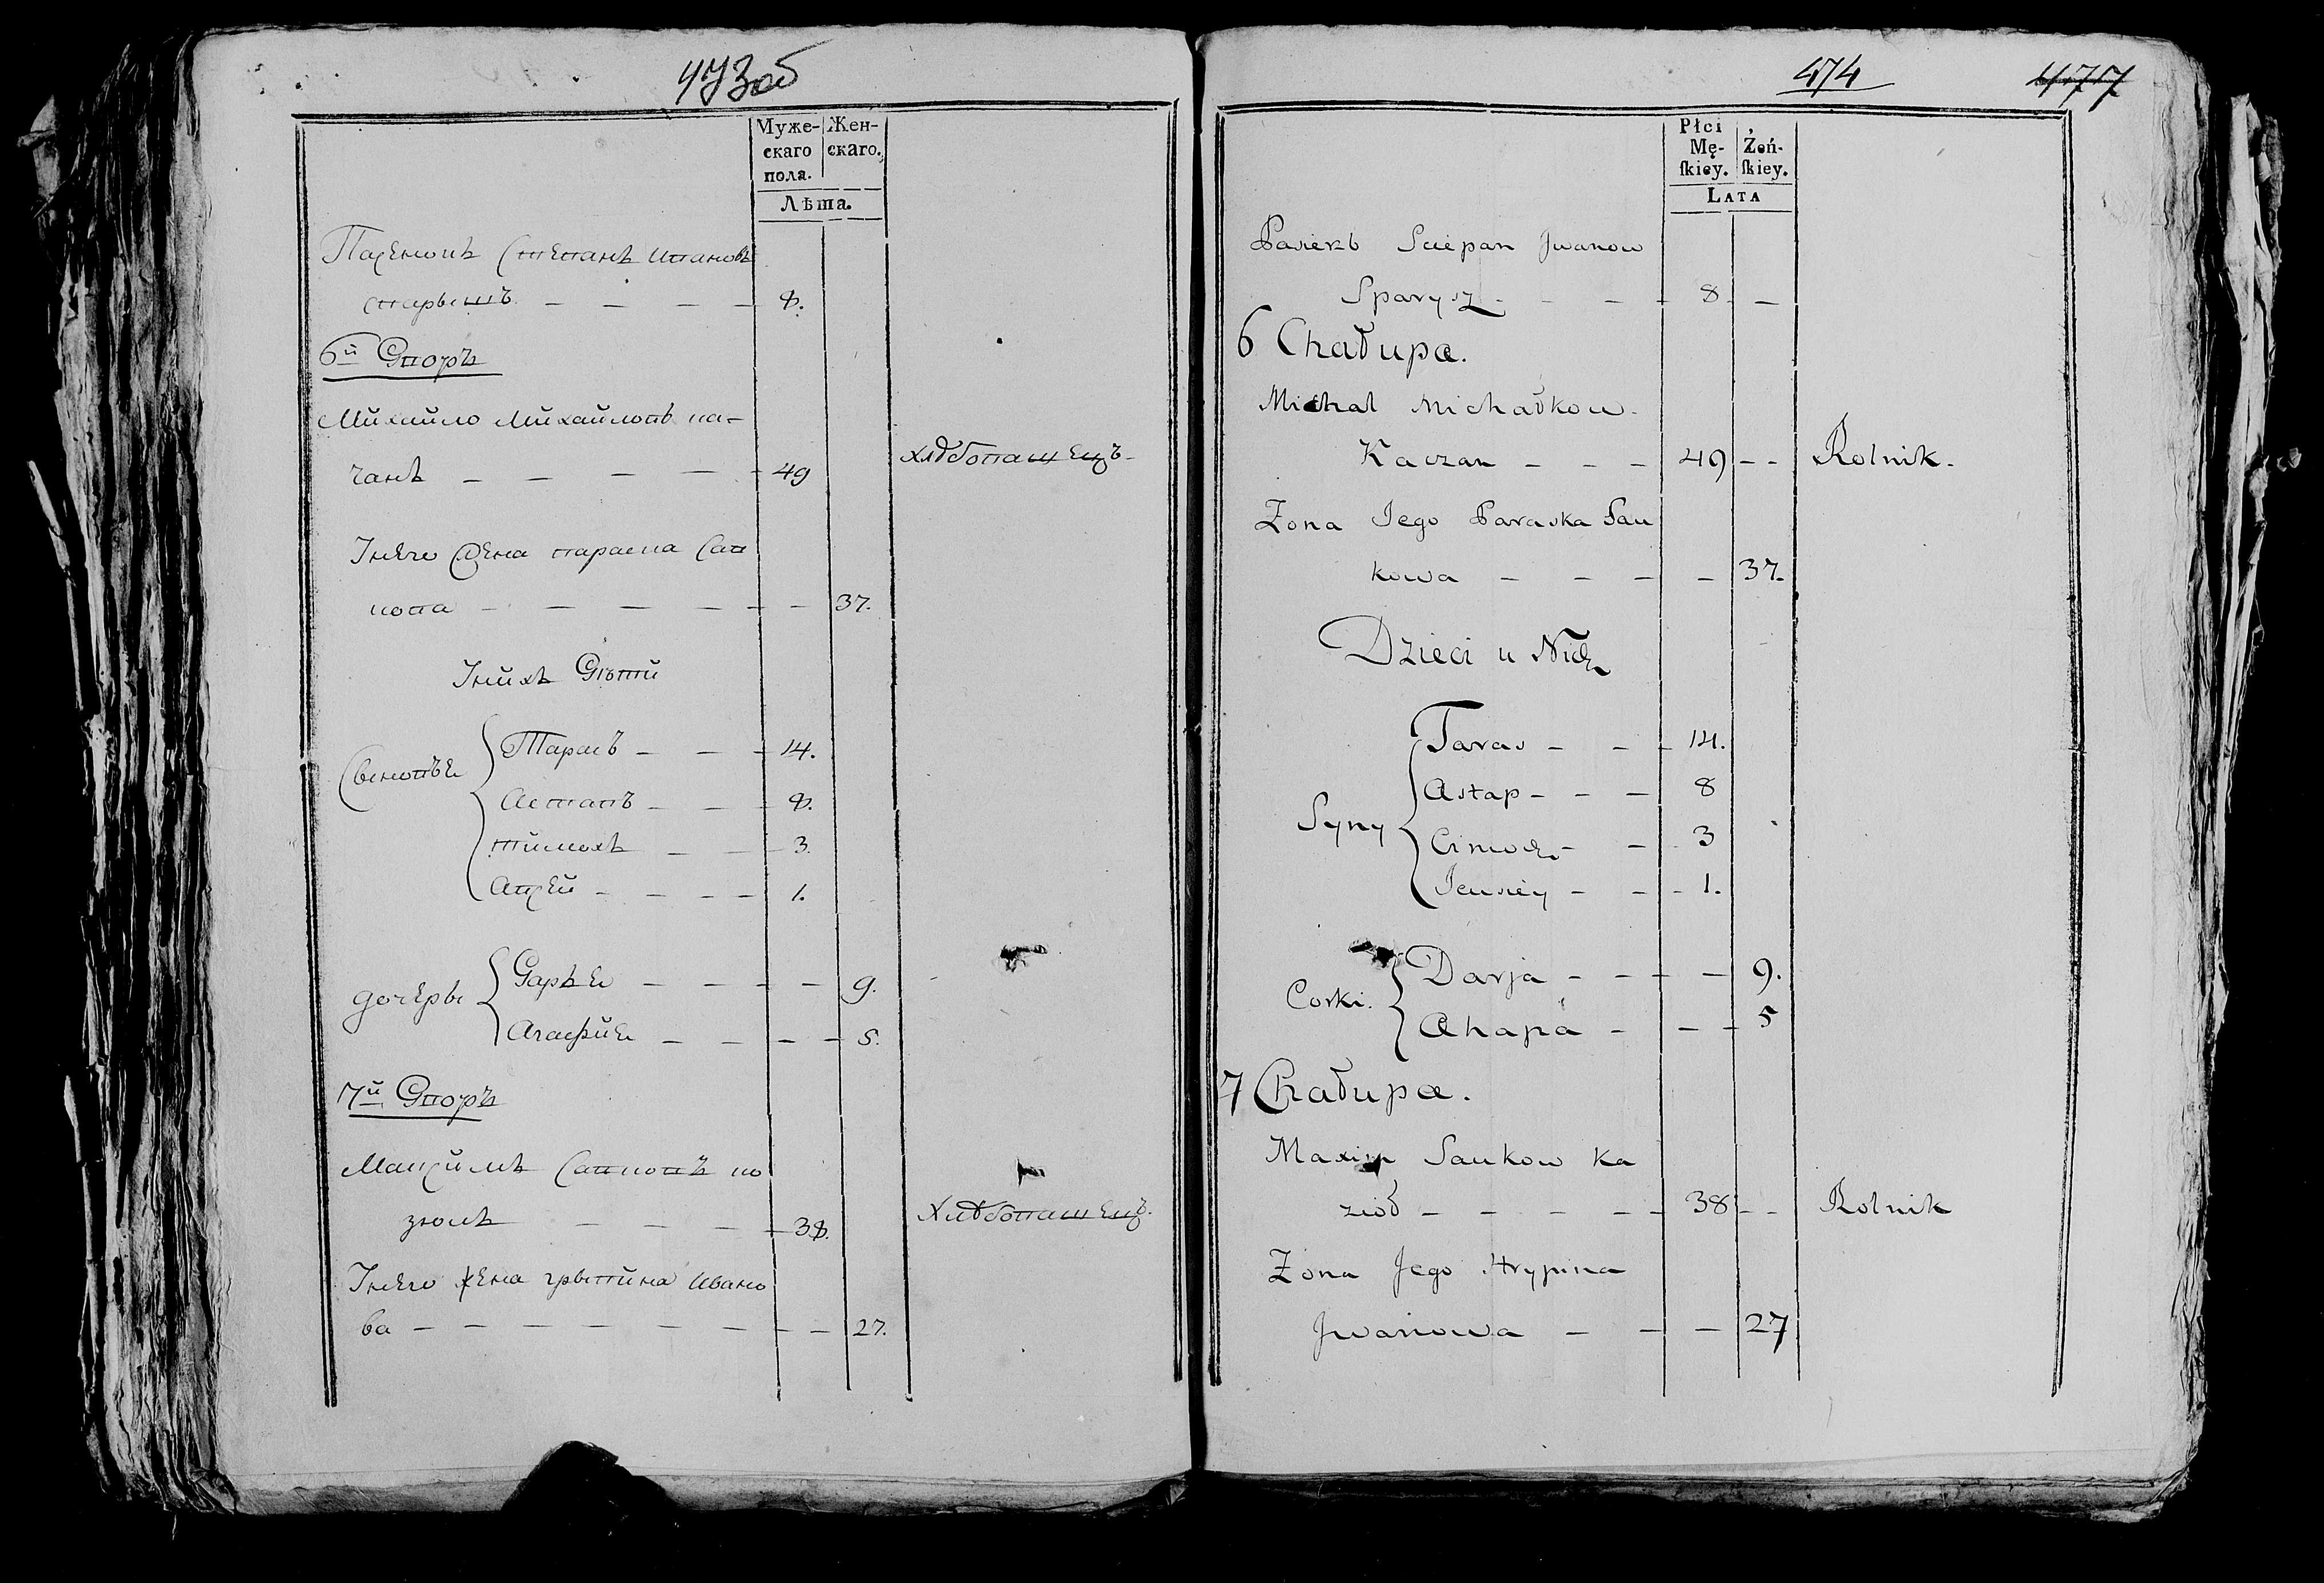 473об
Муже- Жен-
скаго скаго.
пола.
Лѣта.
Степанъ Ивановъ
8.
6й Дворъ
Михайло Михайловъ ка-
чанъ 49 хлѣбопашецъ
У него жена параска Сав
кова 37.
У нихъ Дѣти
Сыновья
Тарасъ 14.
Астапъ 8.
тимохъ 3.
1.
дочеры
Дарья 9.
Агафия 5.
7й Дворъ
Максимъ Савковъ ко
зюлъ 38. Хлѣбопашецъ
У него жена грыпина Ивано
ва 27.
474 477
Płci
Mę- Żeń-
ſkiey. ſkiey.
LATA
Sciepan Jwanow
Sparysz 8
6 Chałupa.
Michał Michałkow
Kaczan 49 Rolnik.
Zona Jego Paraska Sau
kowa 37.
Dzieci u Nich
Syny
Taras 14.
Astap 8
Cimoch 3
Jeusiey 1.
Corki.
Darja 9.
Ahapa 5
7 Chałupa.
Maxim Saukow Ka
zioł 38 Rolnik
Zona Jego Hrypina
Jwanowa 27